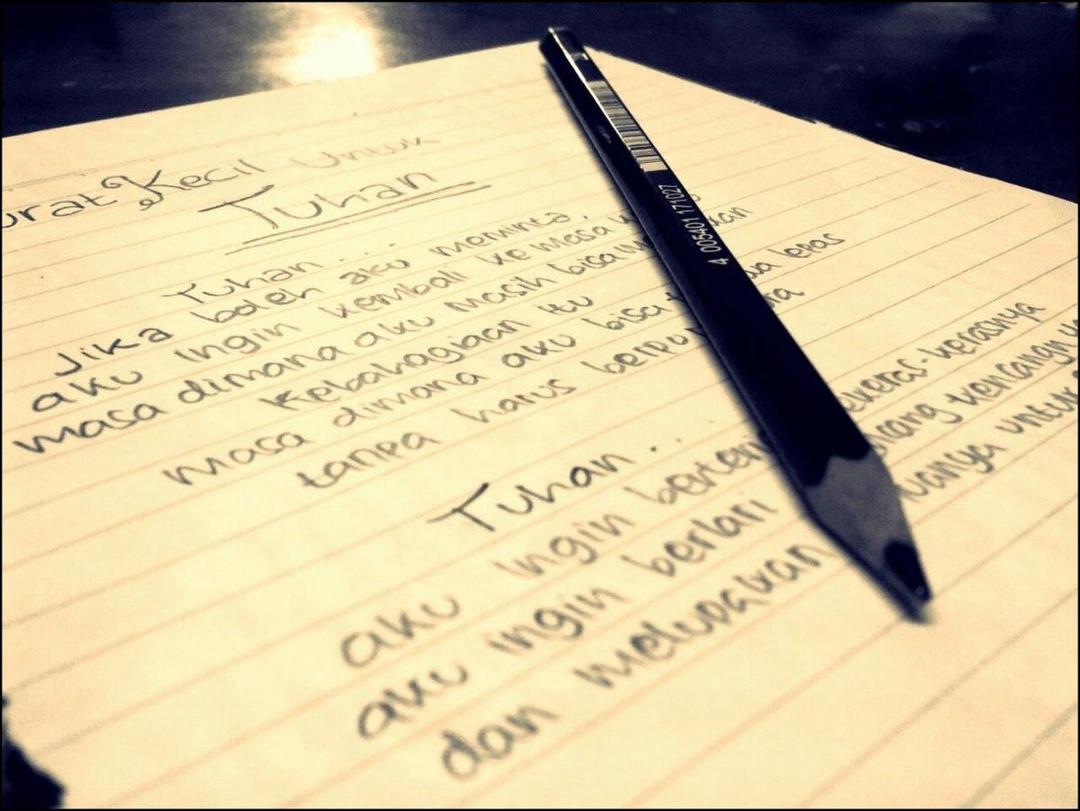 urat Kecil Untuk
Tuhan
Tuhan...
Jika boleh aku meminta,
aku ingin kembali ke masa
masa dimana aku masih bisa
Kebahagiaan itu
masa dimana aku bisa leras
tanpa harus berpu ra
Tuhan...
aku ingin berteri sekeras-kerasnya
aku ingin berlari kencang
dan melupakan uanya untuk
4 005401 171027